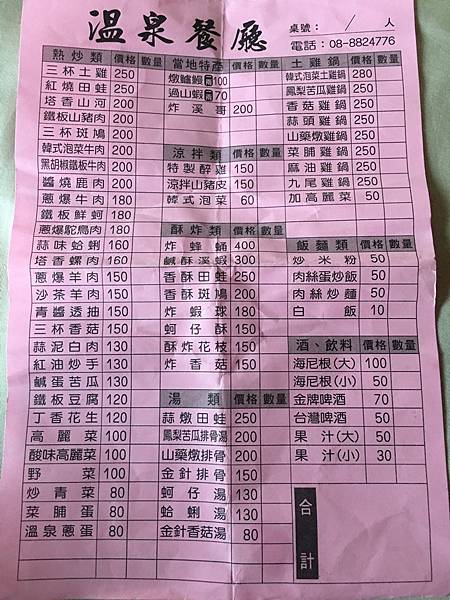 溫泉餐廳
桌號： / 人
電話：08-8824776
熱炒類 價格 數量
三杯土雞 250
紅燒田蛙 250
塔香山河 200
鐵板山豬肉 200
三杯斑鳩 200
韓式泡菜牛肉 200
黑胡椒鐵板牛肉 200
醬燒鹿肉 200
蔥爆牛肉 180
鐵板鮮蚵 180
蔥爆鴕鳥肉 180
蒜味蛤蜊 160
塔香螺肉 160
蔥爆羊肉 150
沙茶羊肉 150
青醬透抽 150
三杯香菇 150
蒜泥白肉 130
紅油炒手 130
鹹蛋苦瓜 130
鐵板豆腐 120
丁香花生 120
高麗菜 100
酸味高麗菜 100
野菜 100
炒青菜 80
菜脯蛋 80
溫泉蔥蛋 80
當地特產 價格 數量
燉鱸鰻 100
過山蝦 70
炸溪哥 200
涼拌類 價格 數量
特製醉雞 150
涼拌山豬皮 150
韓式泡菜 60
酥炸類 價格 數量
炸蜂蛹 400
鹹酥溪蝦 300
香酥田蛙 250
香酥斑鳩 200
炸蝦球 180
蚵仔酥 150
酥炸花枝 150
炸香菇 150
湯類 價格 數量
蒜燉田蛙 250
鳳梨苦瓜排骨湯 200
山藥燉排骨 200
金針排骨 150
蚵仔湯 130
蛤蜊湯 130
金針香菇湯 80
土雞鍋 價格 數量
韓式泡菜土雞鍋 280
鳳梨苦瓜雞鍋 250
香菇雞鍋 250
蒜頭雞鍋 250
山藥燉雞鍋 250
菜脯雞鍋 250
麻油雞鍋 250
九尾雞鍋 250
加高麗菜 50
飯麵類 價格 數量
炒米粉 50
肉絲蛋炒飯 50
肉絲炒麵 50
白飯 10
酒、飲料 價格 數量
海尼根(大) 100
海尼根(小) 50
金牌啤酒 70
台灣啤酒 50
果汁(大) 50
果汁(小) 30
合計